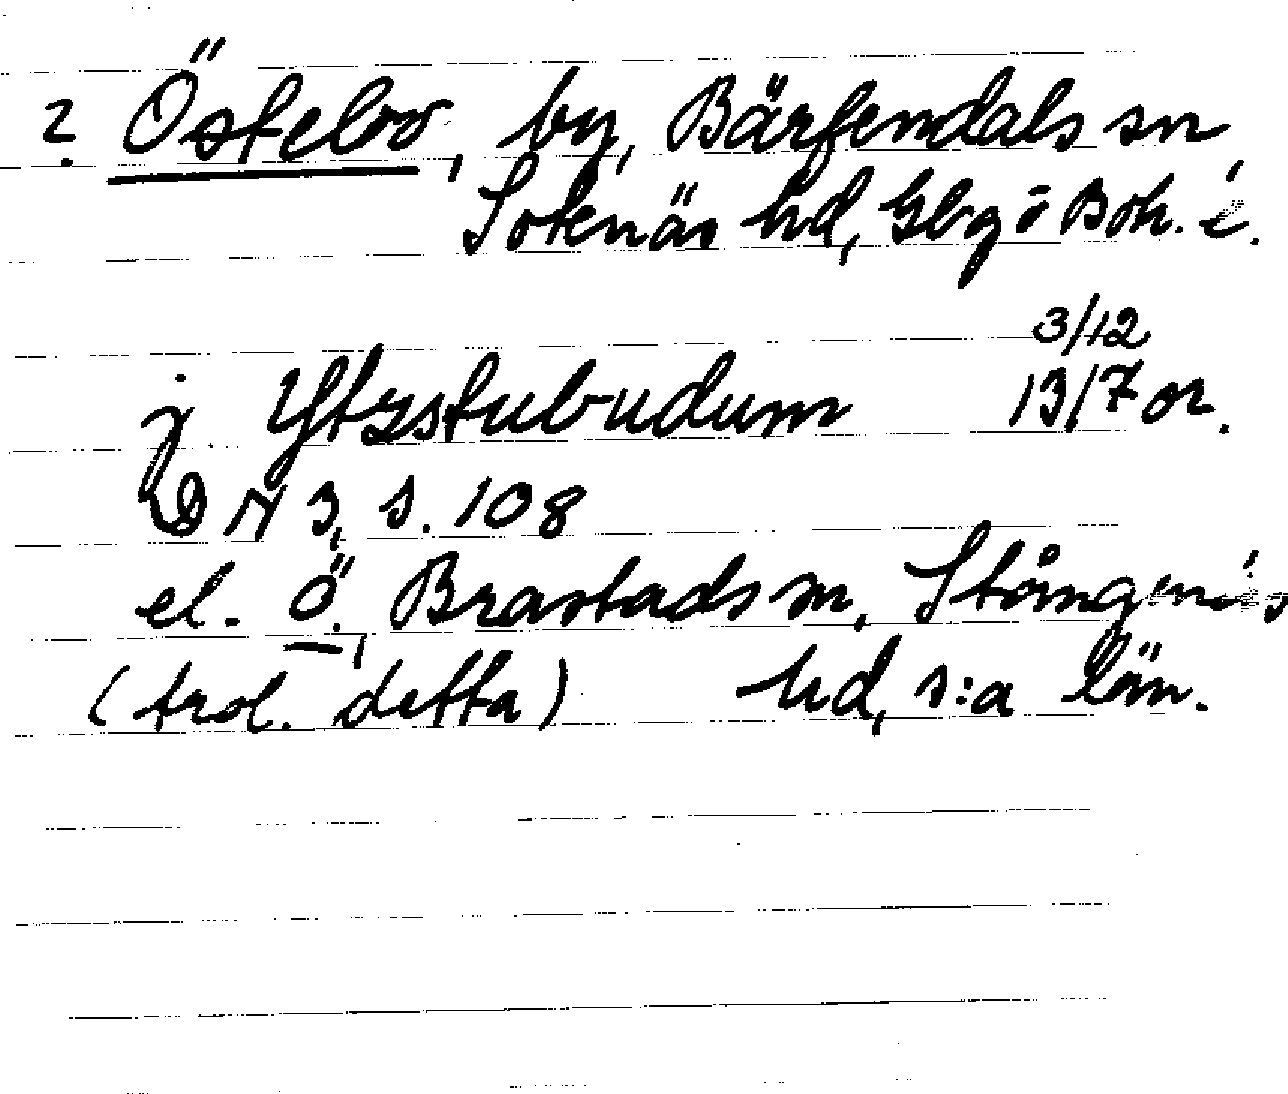 ? Östebo, by, Bärfendals sn,
Sotenäs hd, Gbg o Boh. l.
3/12
j Ytzstubudum 13/7 or.
DN 3, s. 108
el. Ö., Brastads sn, Stångenäs
(trol. detta) hd, s:a län.